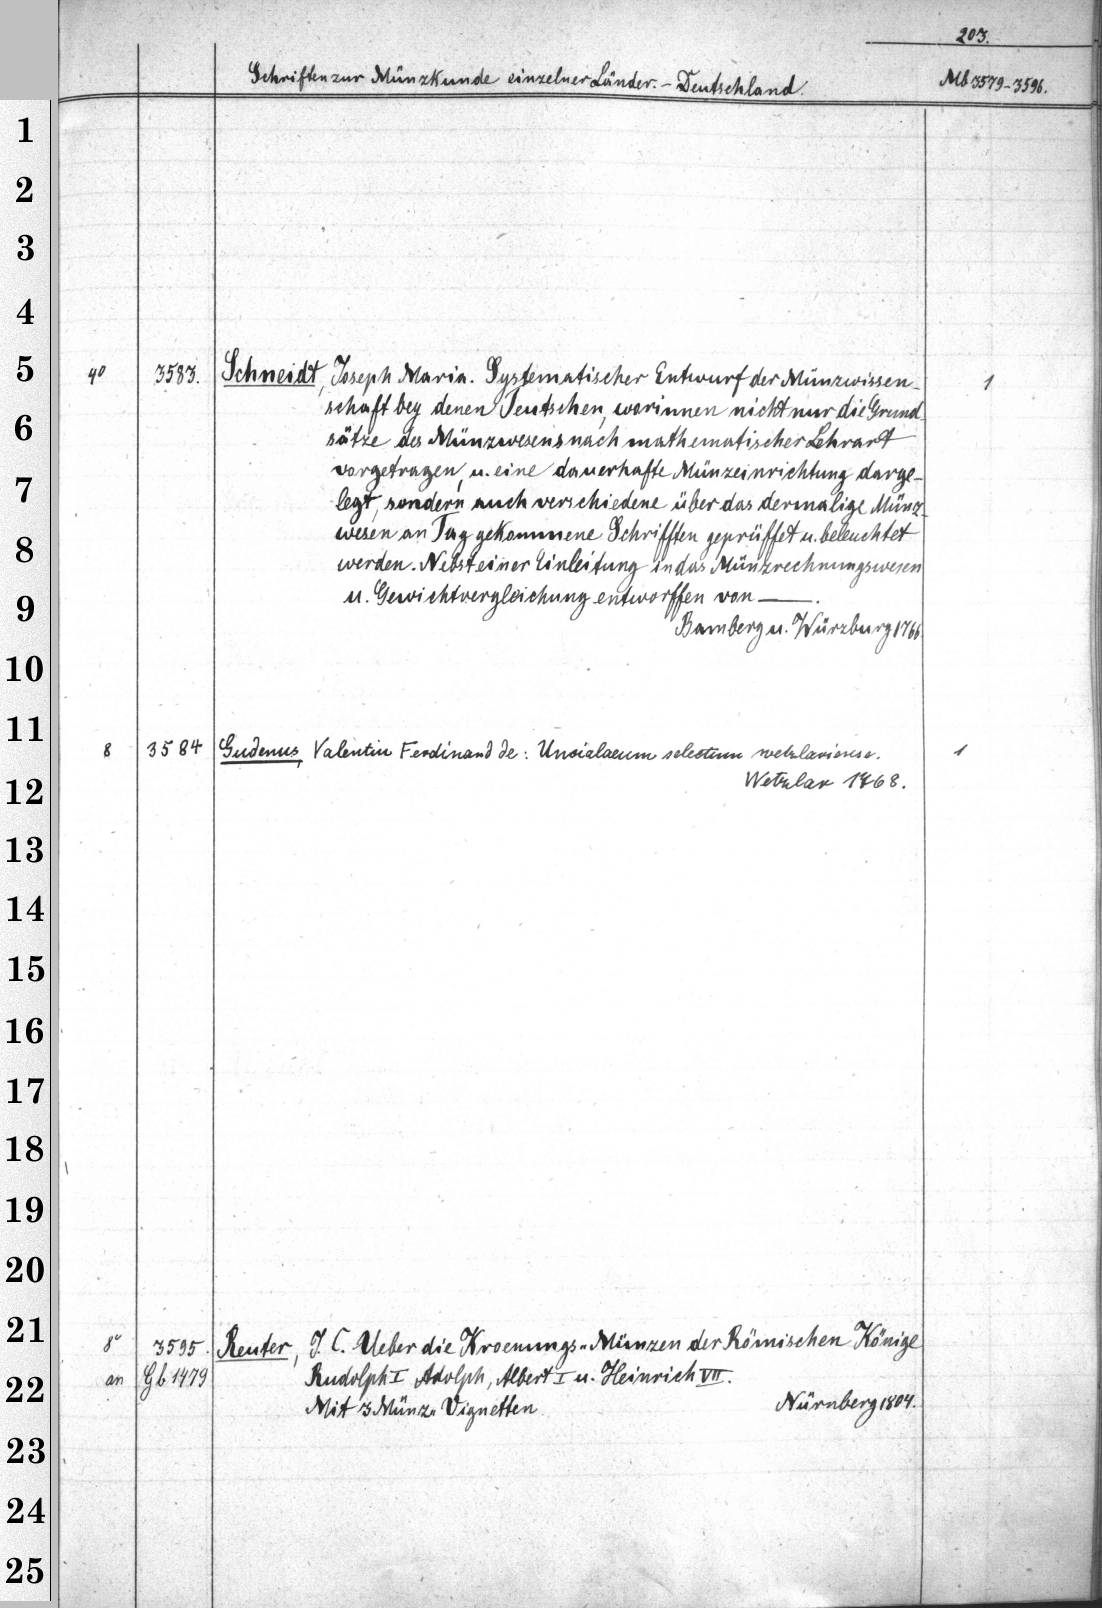 203.
Schriften zur Münzkunde einzelner Länder. - Deutschland.
Mb 3579-3596.
1
2
3
4
5
4° 3583. Schneidt, Joseph Maria. Systematischer Entwurf der Münzwissen- 1
schaft bey denen Teutschen, worinnen nicht nur die Grund-
6
sätze des Münzwesens nach mathematischer Lehrart
7
vorgetragen, u. eine dauerhafte Münzeinrichtung darge-
legt, sondern auch verschiedene über das dermalige Münz-
8
wesen an Tag gekommene Schrifften geprüffet u. beleuchtet
werden. Nebst einer Einleitung in das Münzrechnungswesen
9
u. Gewichtvergleichung entworffen von ———.
Bamberg u. Würzburg 1766
10
11
8 3584 Gudenus, Valentin Ferdinand de: Uncialaeum selectum wetzlariense. 1
12
Wetzlar 1768.
13
14
15
16
17
18
19
20
21
8° 3595. Reuter, J. C. Ueber die Kroenungs-Münzen der Römischen Könige
22
an Gb 1479 Rudolph I Adolph, Albert I u. Heinrich VII.
Mit 3 Münz-Vignetten Nürnberg 1804.
23
24
25